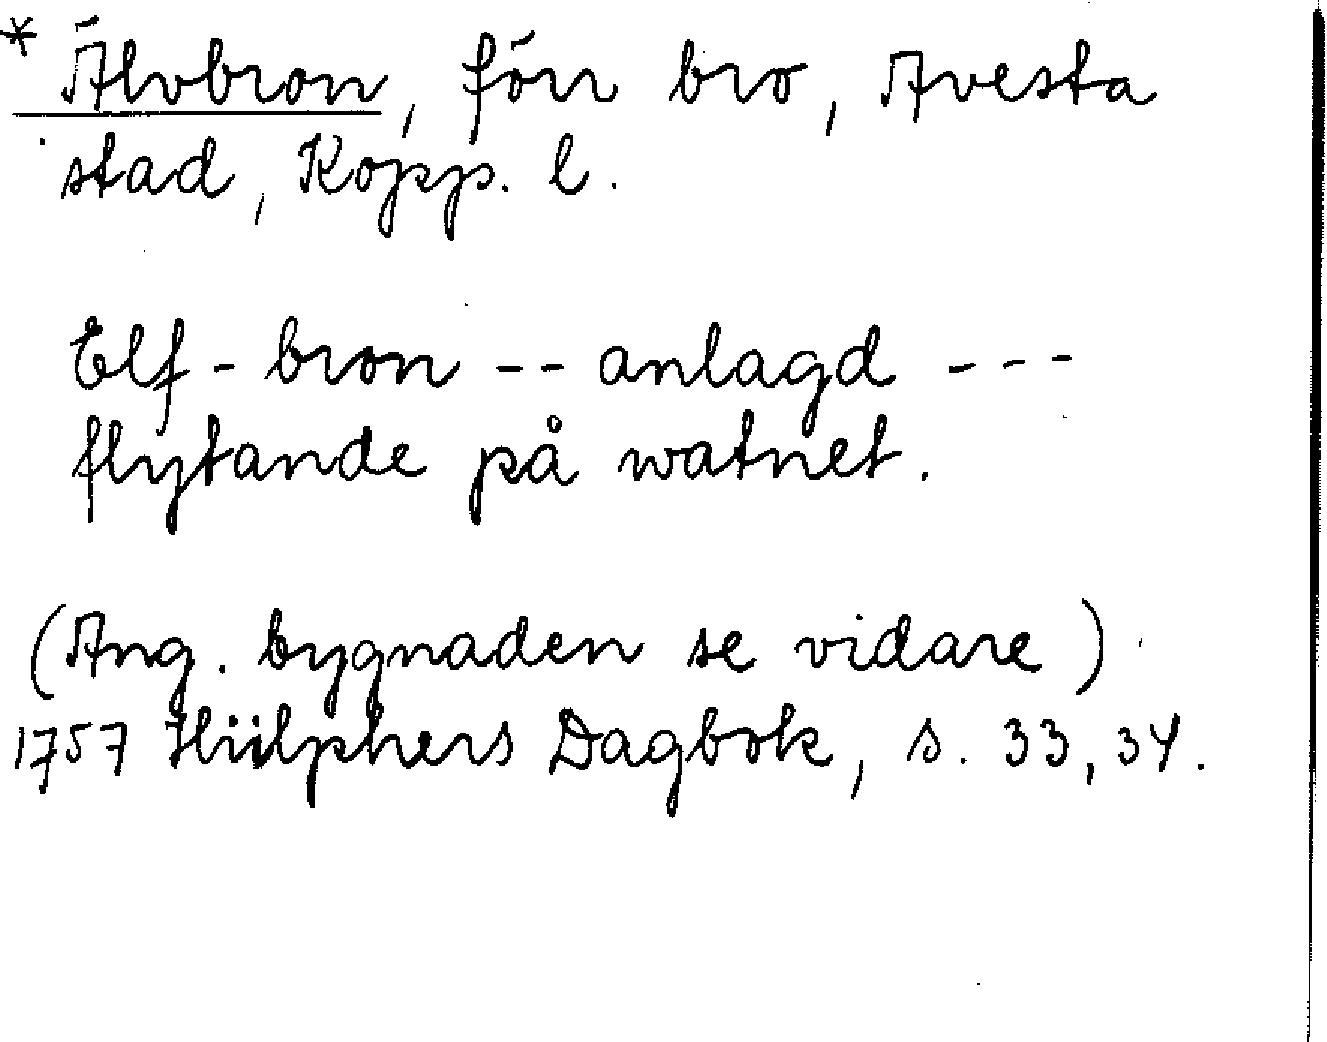 * Älvbron, förr bro, Avesta
stad, Kopp. l.
Elf-bron -- anlagd ---
flytande på watnet.
(Ang. bygnaden se vidare)
1757 Hülphers Dagbok, s. 33, 34.